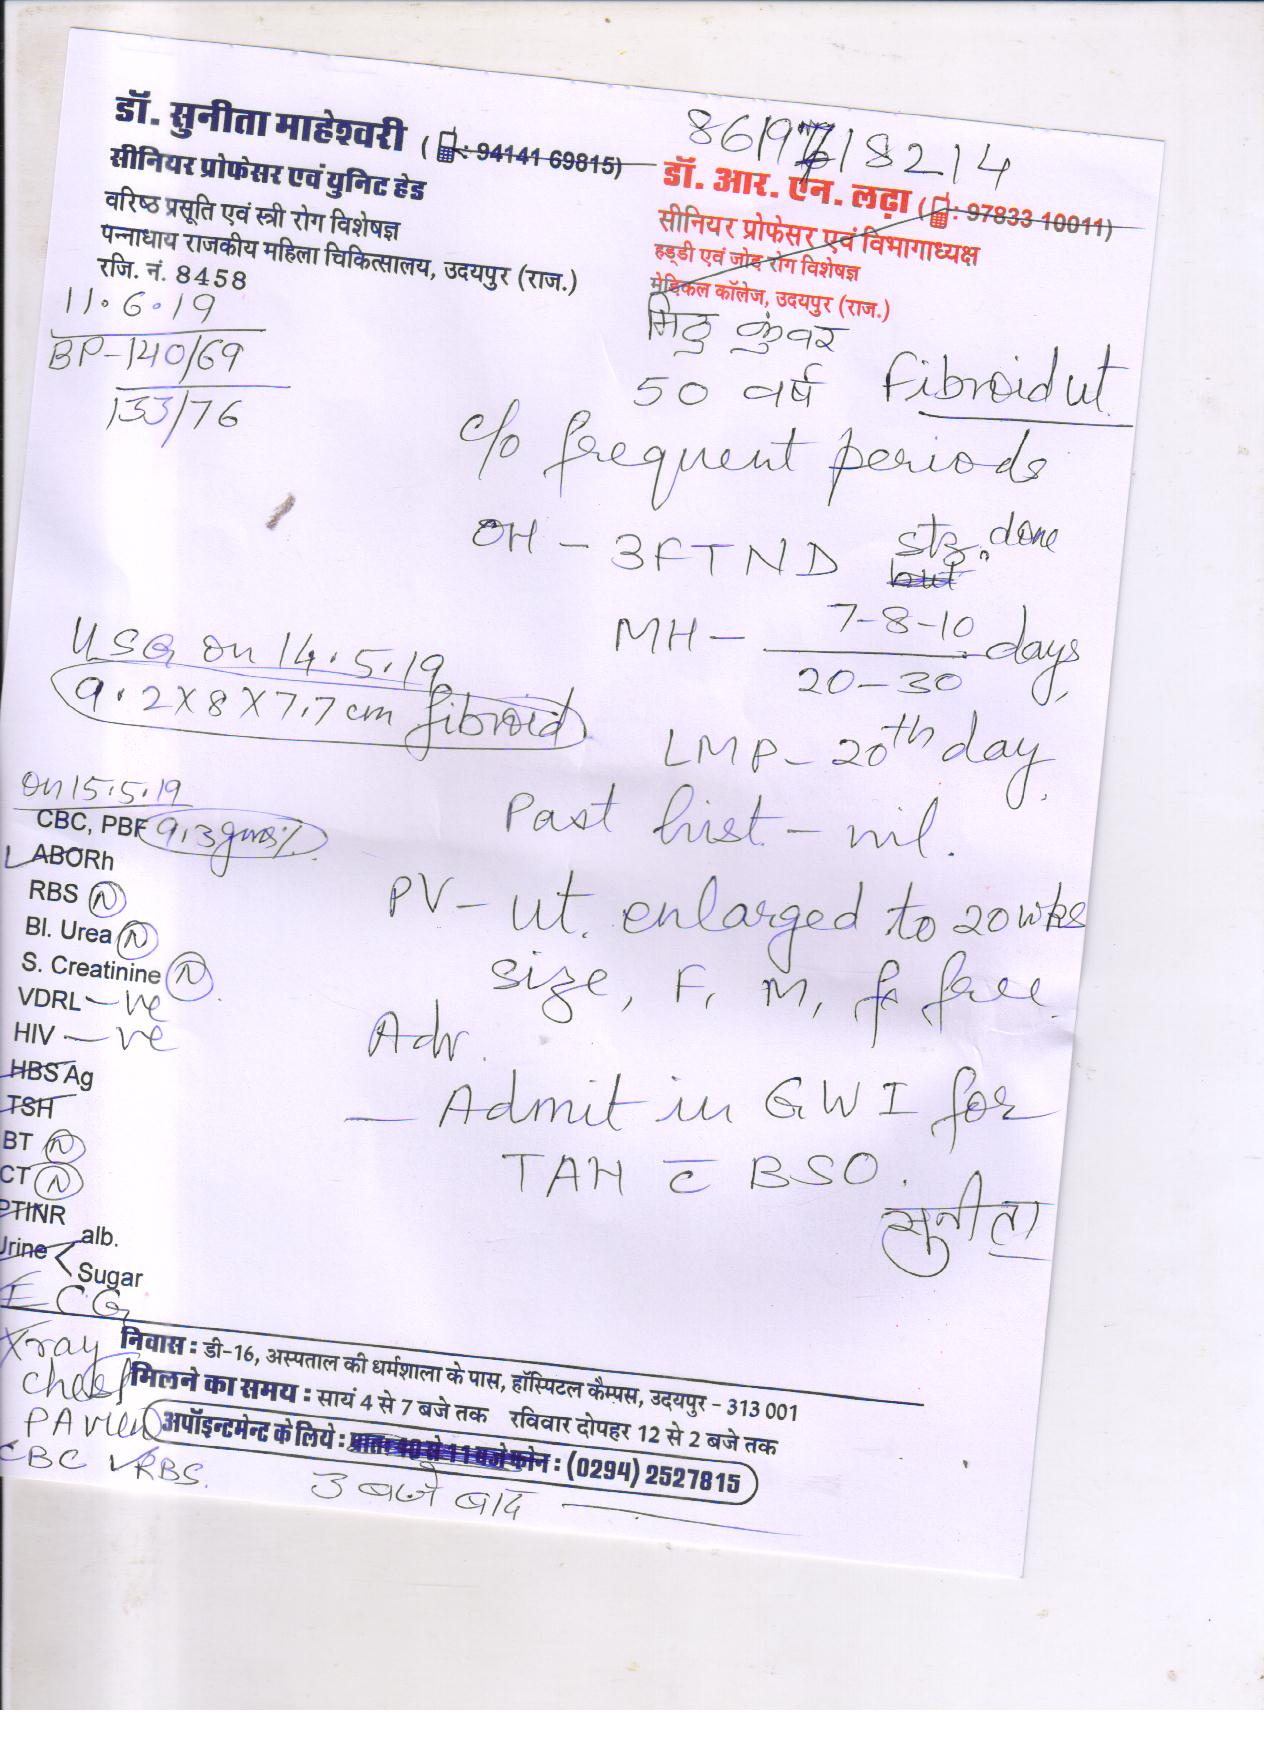 डॉ. सुनीता माहेश्वरी (: 94141 69815)
सीनियर प्रोफेसर एवं युनिट हेड
वरिष्ठ प्रसूति एवं स्त्री रोग विशेषज्ञ
पन्नाधाय राजकीय महिला चिकित्सालय, उदयपुर (राज.)
रजि. नं. 8458
डॉ. आर. एन. लढ़ा (: 97833 10011)
सीनियर प्रोफेसर एवं विभागाध्यक्ष
हड्डी एवं जोड़ रोग विशेषज्ञ
मेडिकल कॉलेज, उदयपुर (राज.)
11.6.19
BP-140/69
133/76
मिठु कुंवर
50 वर्ष Fibroid ut.
c/o frequent periods
OH - 3FTND stz. done
MH - 7-8-10
20-30 days,
LMP - 20th day.
Past hist - nil.
PV - ut. enlarged to 20 wks
size, F, M, ff free.
Adv.
- Admit in GWI for
TAH c̅ BSO.
सुनीता
USG on 14.5.19
9.2X8X7.7cm fibroid
on 15.5.19
CBC, PBF 9.3gms%
ABORh
RBS N
Bl. Urea N
S. Creatinine N
VDRL -ve
HIV -ve
HBS Ag
TSH
BT N
CT N
PTINR
Urine < alb.
Sugar
ECG
Xray
chest
PA view
CBC RBS.
निवास : डी-16, अस्पताल की धर्मशाला के पास, हॉस्पिटल कैम्पस, उदयपुर - 313 001
मिलने का समय : सायं 4 से 7 बजे तक रविवार दोपहर 12 से 2 बजे तक
अपॉइन्टमेन्ट के लिये : प्रातः 10 से 11 बजे फोन : (0294) 2527815
3 बजे बाद